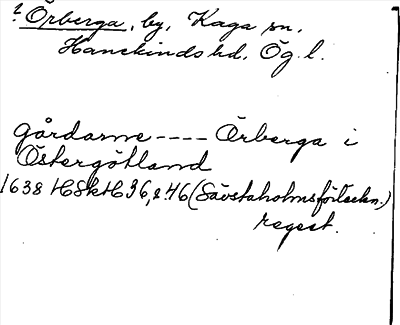 ? Örberga, by, Kaga sn,
Hanekinds hd, Ög. l.
gårdarne ---- Örberga i
Östergötland
1638 HSkH 36, s. 46 (Sävstaholmsförteckn.)
regest.